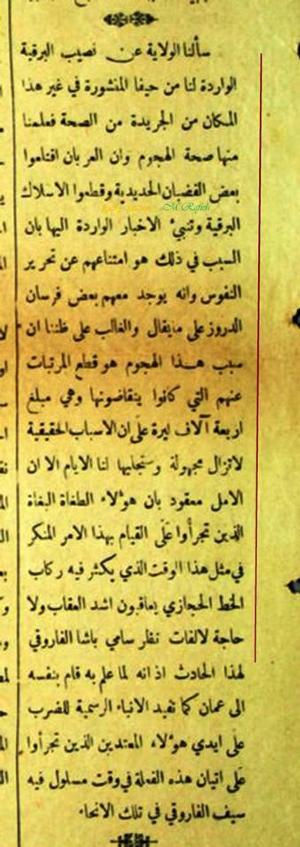 سألنا الولاية عن نصيب البرقية
الواردة لنا من حيفا المنشورة في غير هذا
المكان من الجريدة من الصحة فعلمنا
منها صحة الهجوم وان العربان اقتلموا
بعض القضبان الحديدية وقطعوا الاسلاك
M.Rafeh
البرقية وتنبيء الاخبار الواردة اليها بان
السبب في ذلك هو امتناعهم عن تحرير
النفوس وانه يوجد معهم بعض فرسان
الدروز على مايقال والغالب على ظننا ان
سبب هذا الهجوم هو قطع المرتبات
عنهم التي كانوا يتقاضونها وهي مبلغ
اربعة آلاف ليرة على ان الاسباب الحقيقية
لاتزال مجهولة وستجليها لنا الايام الا ان
الامل معقود بان هؤلاء الطغاة البغاة
الذين تجرأوا على القيام بهذا الامر المنكر
في مثل هذا الوقت الذي يكثر فيه ركاب
الخط الحجازي يعاقبون اشد العقاب ولا
حاجة لالفات نظر سامي باشا الفاروقي
لهذا الحادث اذ انه لما علم به قام بنفسه
الى عمان كما تفيد الانباء الرسمية للضرب
على ايدي هؤلاء المعتدين الذين تجرأوا
على اتيان هذه الفعلة في وقت مسلول فيه
سيف الفاروقي في تلك الانحاء